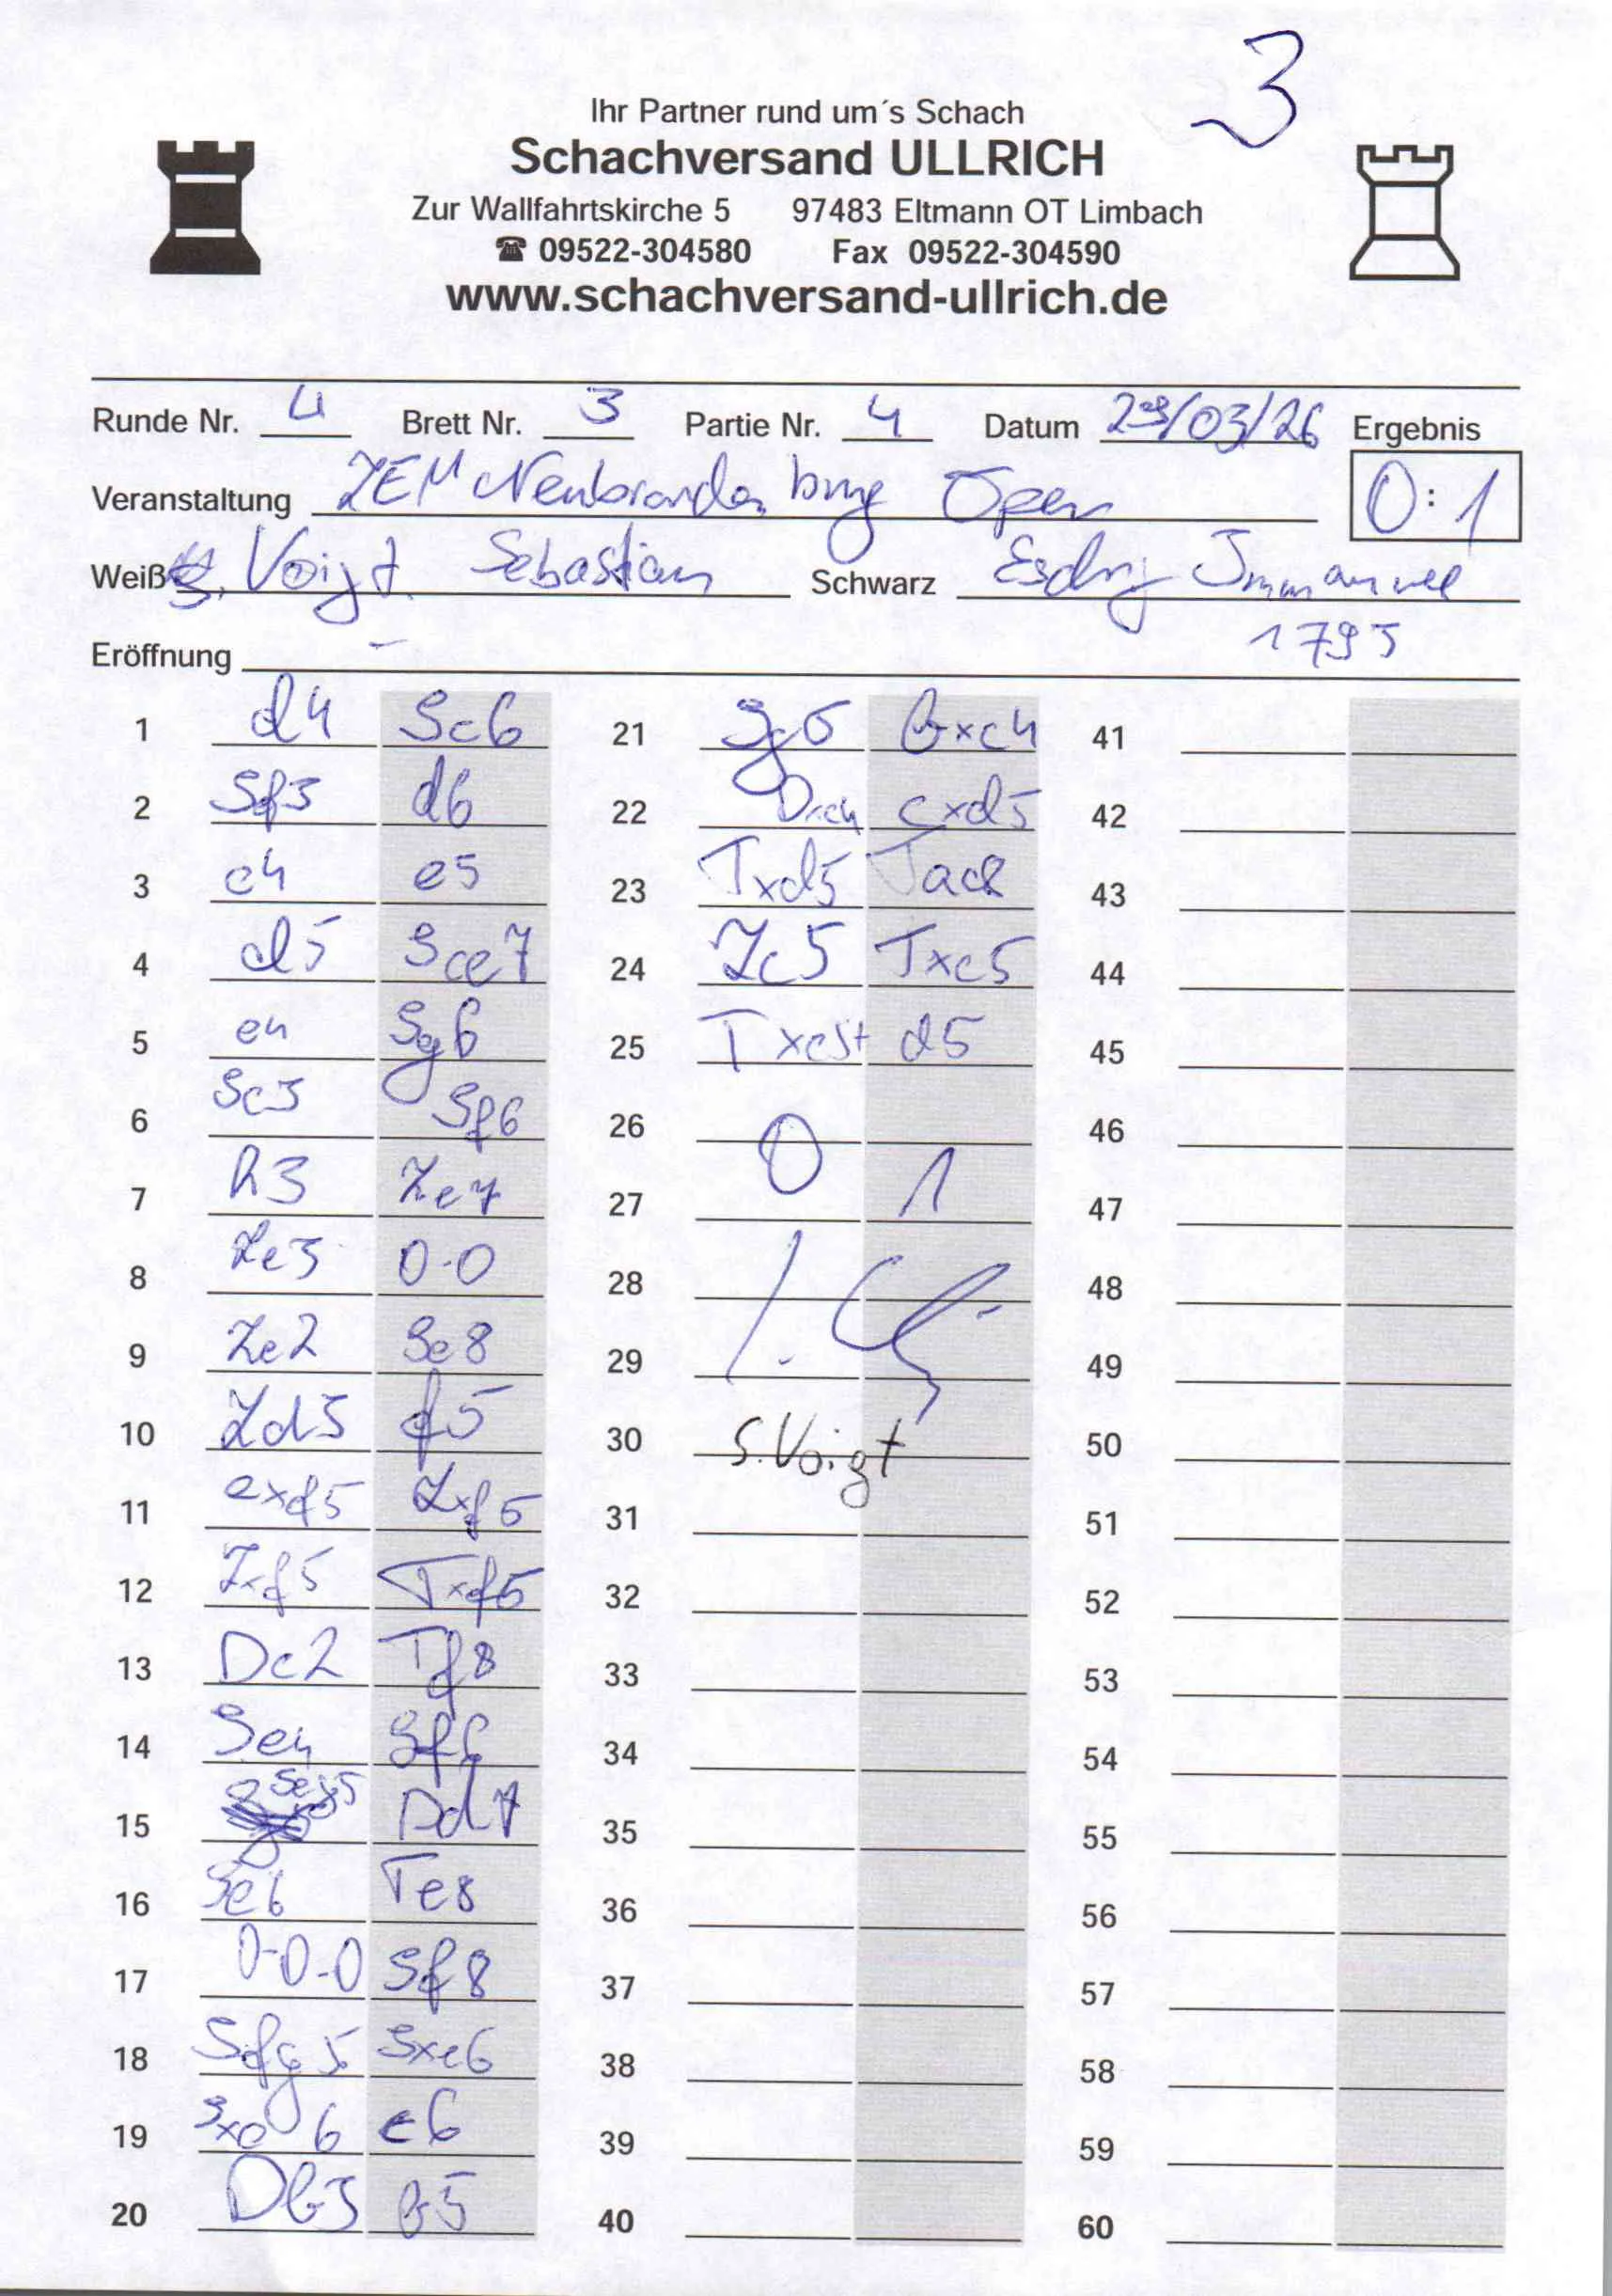 3
Ihr Partner rund um´s Schach
Schachversand ULLRICH
Zur Wallfahrtskirche 5 97483 Eltmann OT Limbach
☎ 09522-304580 Fax 09522-304590
www.schachversand-ullrich.de
Runde Nr. 4 Brett Nr. 3 Partie Nr. 4 Datum /03/26 Ergebnis
Veranstaltung ZEM Neubrandenburg Open 0:1
Weiß Voigt Sebastian Schwarz Immanuel
1795
Eröffnung -
1 d4 Sc6 21 g5 bxc4 41
2 Sf3 d6 22 Dxc4 cxd5 42
3 c4 e5 23 Txd5 Tac8 43
4 d5 Sce7 24 Lc5 Txc5 44
5 e4 Sg6 25 Txc5+ d5 45
6 Sc3 Sf6 26 46
7 h3 Le7 27 0 1 47
8 Le3 0-0 28 48
9 Le2 Se8 29 49
10 Ld3 f5 30 S.Voigt 50
11 exf5 Lxf5 31 51
12 Lxf5 Txf5 32 52
13 Dc2 Tf8 33 53
14 Se4 Sf6 34 54
15 Seg5 Dd7 35 55
16 Se6 Te8 36 56
17 0-0-0 Sf8 37 57
18 Sfg5 Sxe6 38 58
19 Sxe6 c6 39 59
20 Db3 b5 40 60